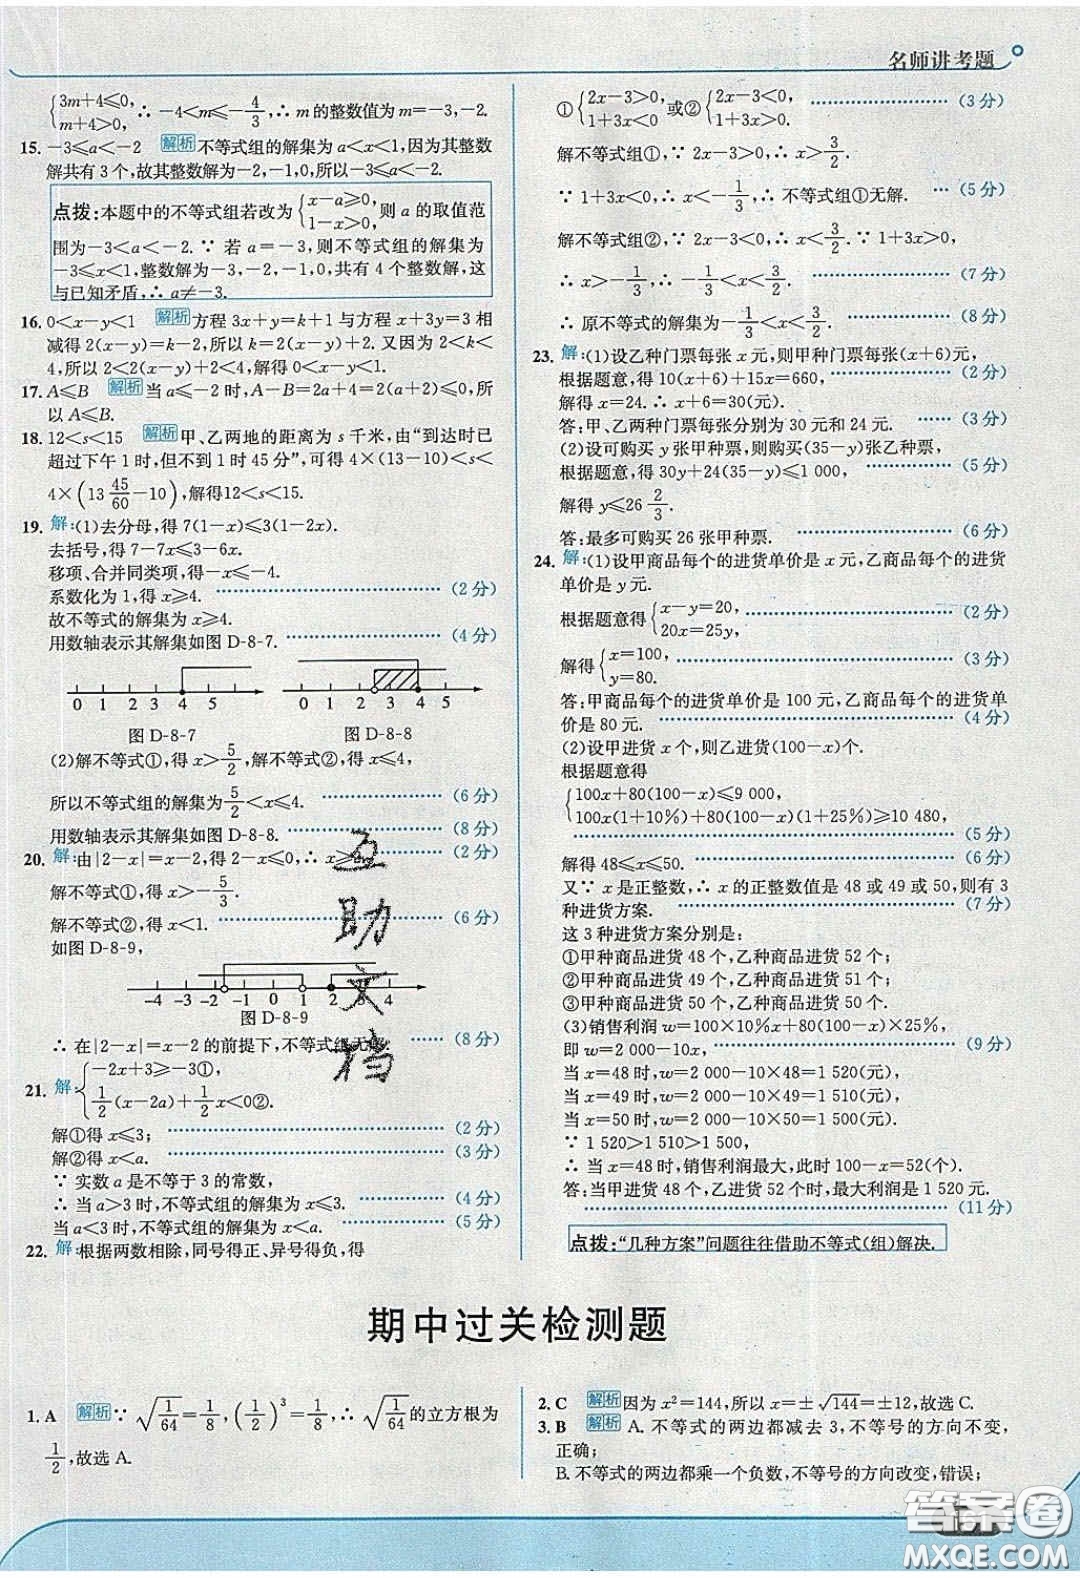 名师讲考题
{3m+4≤0, m+4>0, ∴ -4<m≤-4/3, ∴ m的整数值为m=-3,-2.
15. -3≤a<-2 解析 不等式组的解集为a<x<1,因为其整数
解共有3个,故其整数解为-2,-1,0,所以-3≤a<-2.
点拨:本题中的不等式组若改为{x-a≥0, 1-x>0, 则a的取值范
围为-3<a<-2. ∵ 若a=-3,则不等式组的解集为
-3≤x<1,整数解为-3,-2,-1,0,共有4个整数解,这
与已知矛盾,∴ a≠-3.
16. 0<x-y<1 解析 方程3x+y=k+1与方程x+3y=3相
减得2(x-y)=k-2,所以k=2(x-y)+2.又因为2<k<
4,所以2<2(x-y)+2<4,解得0<x-y<1.
17. A≤B 解析 当a≤-2时,A-B=2a+4=2(a+2)≤0,所
以A≤B.
18. 12<s<15 解析 甲、乙两地的距离为s千米,由“到达时已
超过下午1时,但不到1时45分”,可得4×(13-10)<s<
4×(13 45/60-10),解得12<s<15.
19. 解:(1)去分母,得7(1-x)≤3(1-2x).
去括号,得7-7x≤3-6x.
移项、合并同类项,得-x≤-4.
系数化为1,得x≥4. (2分)
故不等式的解集为x≥4.
用数轴表示其解集如图D-8-7. (4分)
0 1 2 3 4 5 0 1 2 3 4 5
图D-8-7 图D-8-8
(2)解不等式①,得x>5/2,解不等式②,得x≤4,
所以不等式组的解集为5/2<x≤4. (6分)
用数轴表示其解集如图D-8-8. (8分)
20. 解:由|2-x|=x-2,得2-x≤0,∴ x≥2. (2分)
解不等式①,得x>-5/3.
解不等式②,得x<1. (6分)
如图D-8-9,
-4 -3 -2 -1 0 1 2 3 4
图D-8-9
∴ 在|2-x|=x-2的前提下,不等式组无解. (8分)
21. 解:{-2x+3≥-3①, 1/2(x-2a)+1/2x<0②.
解①得x≤3; (2分)
解②得x<a. (3分)
∵ 实数a是不等于3的常数,
∴ 当a>3时,不等式组的解集为x≤3. (4分)
当a<3时,不等式组的解集为x<a. (5分)
22. 解:根据两数相除,同号得正、异号得负,得
①{2x-3>0, 1+3x<0 或②{2x-3<0, 1+3x>0. (3分)
解不等式组①,∵ 2x-3>0,∴ x>3/2.
∵ 1+3x<0,∴ x<-1/3,∴ 不等式组①无解. (5分)
解不等式组②,∵ 2x-3<0,∴ x<3/2. ∵ 1+3x>0,
∴ x>-1/3,∴ -1/3<x<3/2. (7分)
∴ 原不等式的解集为-1/3<x<3/2. (8分)
23. 解:(1)设乙种门票每张x元,则甲种门票每张(x+6)元,
根据题意,得10(x+6)+15x=660, (2分)
解得x=24. ∴ x+6=30(元).
答:甲、乙两种门票每张分别为30元和24元. (3分)
(2)设可购买y张甲种票,则购买(35-y)张乙种票,
根据题意,得30y+24(35-y)≤1 000, (5分)
解得y≤26 2/3.
答:最多可购买26张甲种票. (6分)
24. 解:(1)设甲商品每个的进货单价是x元,乙商品每个的进货
单价是y元.
根据题意得{x-y=20, 20x=25y, (2分)
解得{x=100, y=80. (3分)
答:甲商品每个的进货单价是100元,乙商品每个的进货单
价是80元. (4分)
(2)设甲进货x个,则乙进货(100-x)个.
根据题意得
{100x+80(100-x)≤9 000,
100x(1+10%)+80(100-x)(1+25%)≥10 480,
(5分)
解得48≤x≤50. (6分)
又∵ x是正整数,∴ x的正整数值是48或49或50,则有3
种进货方案. (7分)
这3种进货方案分别是:
①甲种商品进货48个,乙种商品进货52个;
②甲种商品进货49个,乙种商品进货51个;
③甲种商品进货50个,乙种商品进货50个.
(3)销售利润w=100×10%x+80(100-x)×25%,
即w=2 000-10x, (9分)
当x=48时,w=2 000-10×48=1 520(元),
当x=49时,w=2 000-10×49=1 510(元),
当x=50时,w=2 000-10×50=1 500(元).
∵ 1 520>1 510>1 500,
∴ 当x=48时,销售利润最大,此时100-x=52(个).
答:当甲进货48个,乙进货52个时,最大利润是1 520元.
(11分)
点拨:“几种方案”问题往往借助不等式(组)解决.
互助文档
期中过关检测题
1. A 解析 ∵ √(1/64)=1/8,(1/2)³=1/8,∴ √(1/64)的立方根为
1/2,故选A.
2. C 解析 因为x²=144,所以x=±√144=±12,故选C.
3. B 解析 A.不等式的两边都减去3,不等号的方向不变,
正确;
B.不等式的两边都乘一个负数,不等号的方向改变,错误;
答案圈
MXQE.COM